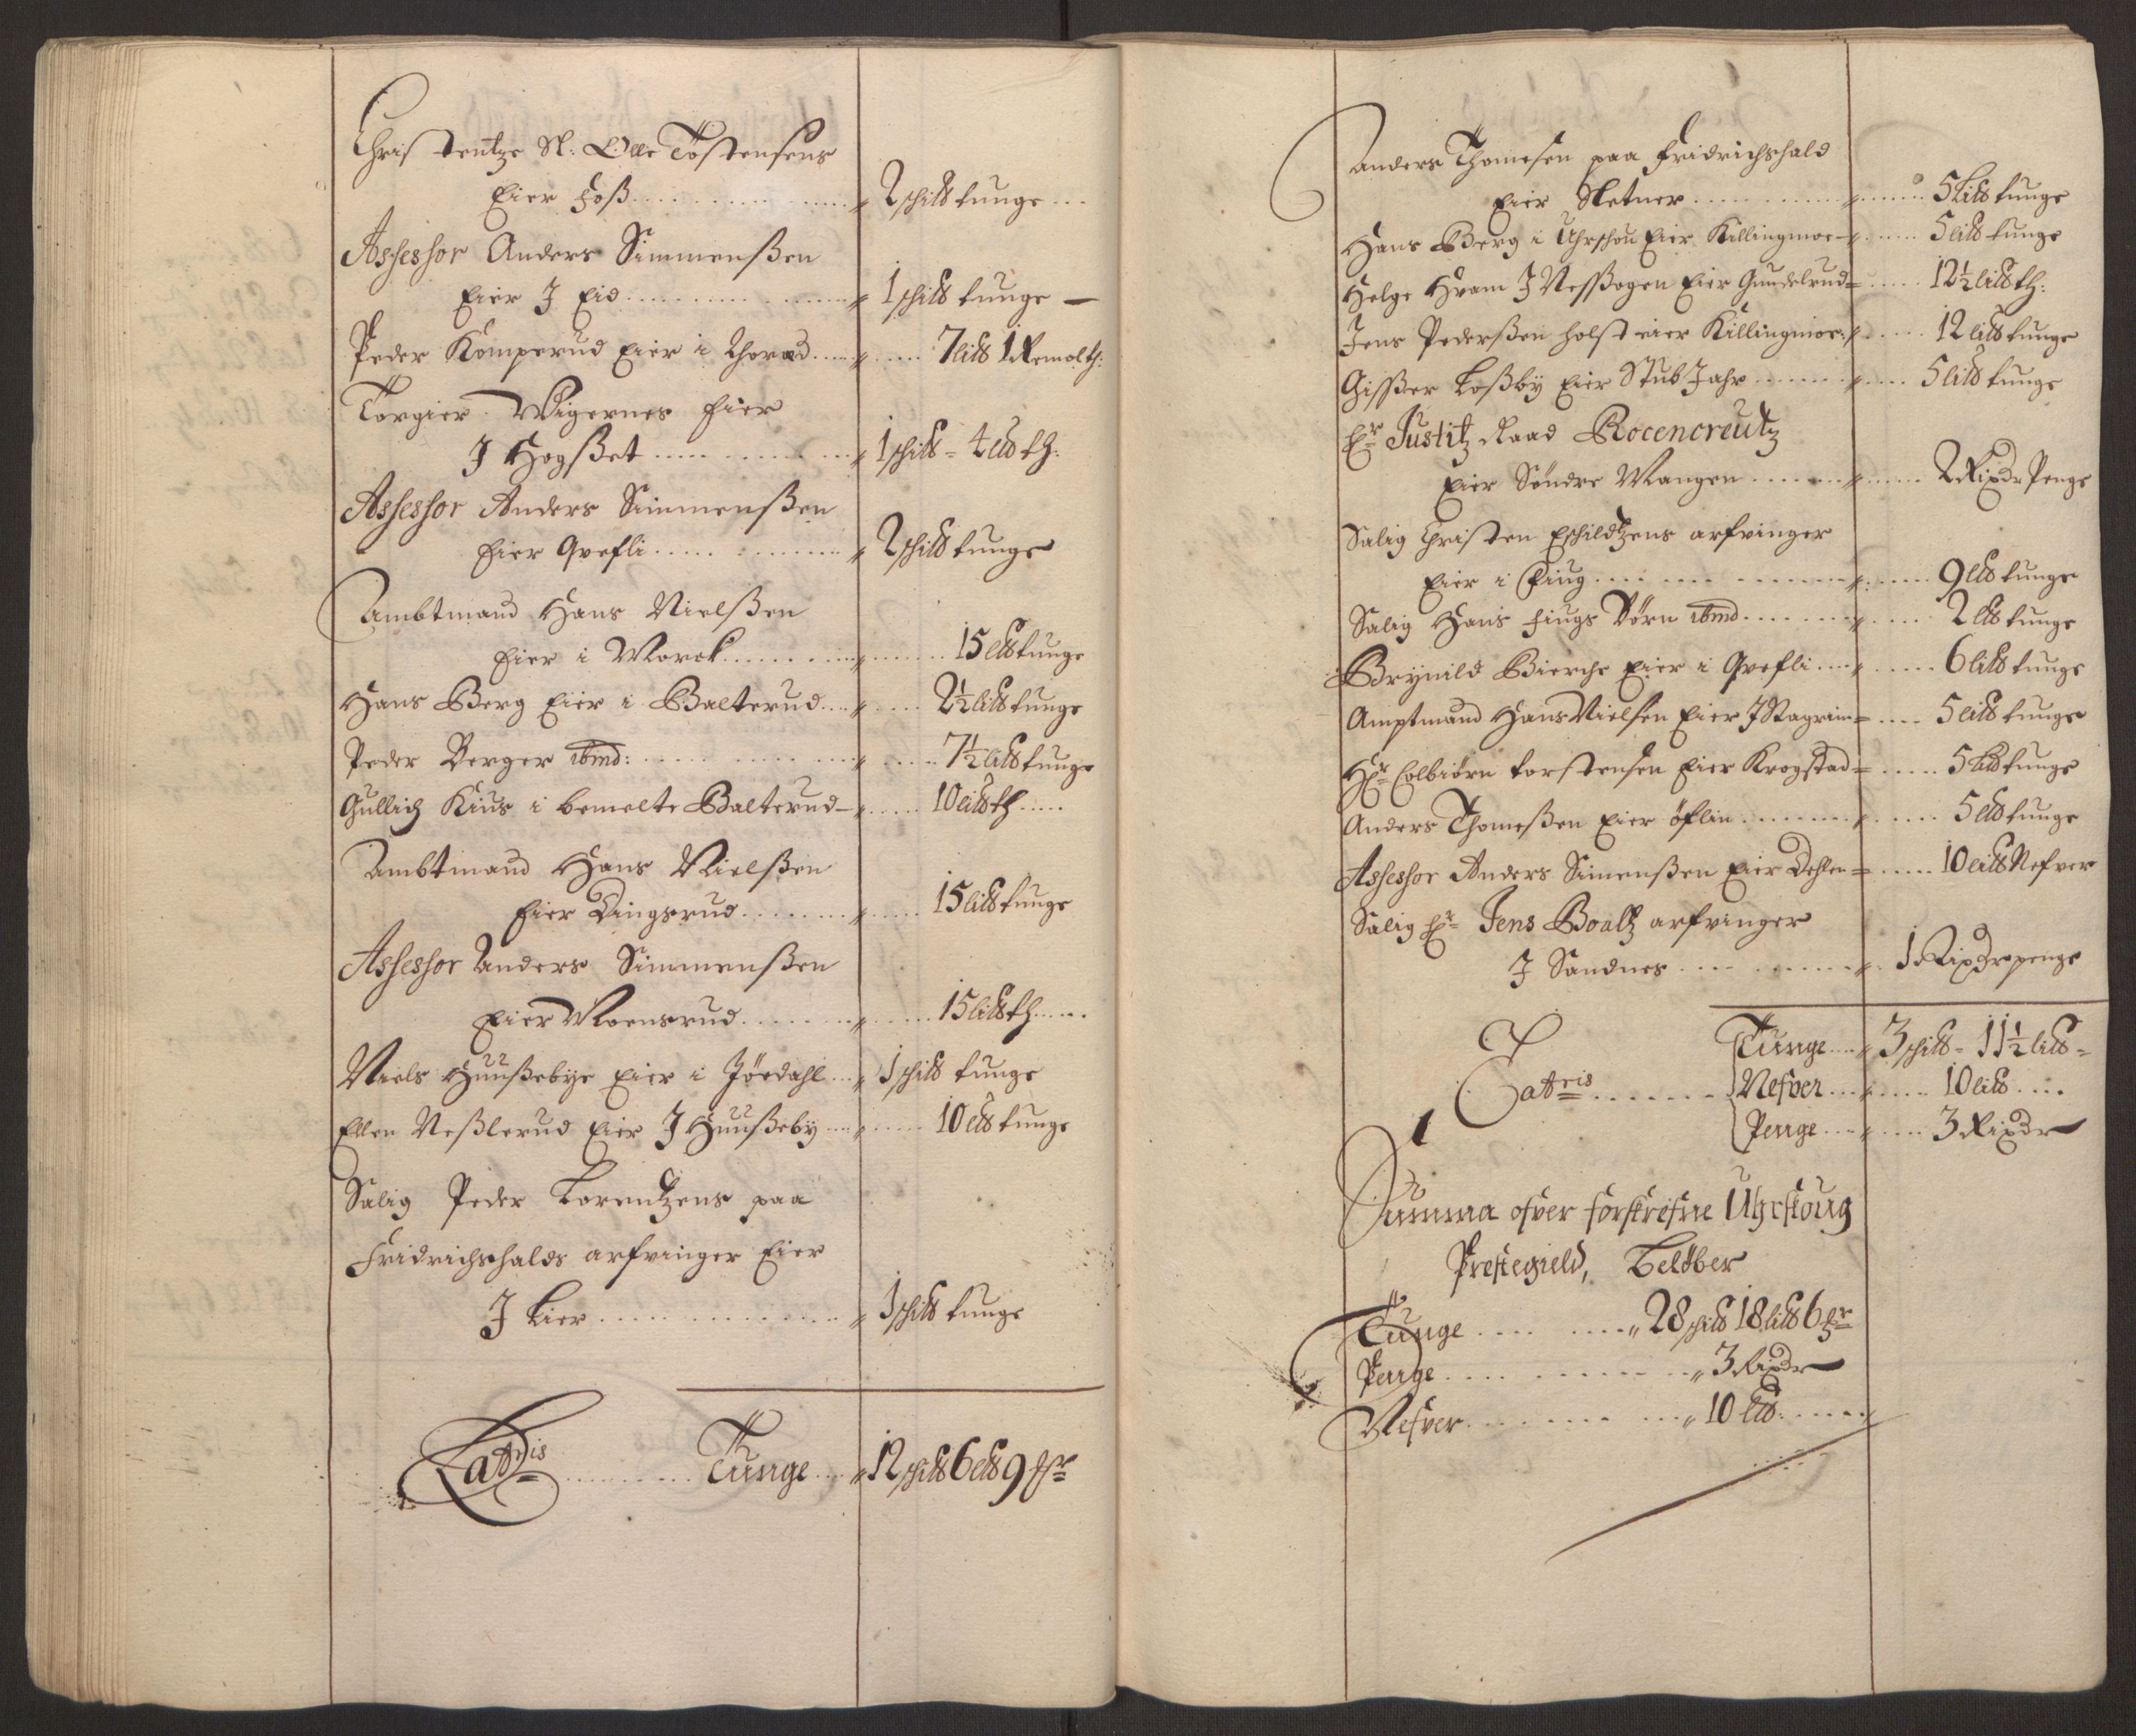 Christentze Sl: Olle Tostensens
Eier Foss ..... 2 schl℔ tunge
Assessor Anders Simmenssen
Eier J Eid ..... 1 schl℔ tunge
Peder Komperud Eier i ..... 7 lil℔ 1 Remol th:
Torgier Wigernes Eier
J Hogsset ..... 1 schl℔ - 4 l℔ th:
Assessor Anders Simmenssen
Eier Qvefli ..... 2 schl℔ tunge
Ambtmand Hans Nielssen
Eier i Morck ..... 15 l℔ tunge
Hans Berg Eier i Balterud ..... 2½ lil℔ tunge
Peder Berger ibmd: ..... 7½ lil℔ tunge
Gullich Kius i bemelte Balterud ..... 10 lil℔ th
Ambtmand Hans Nielssen
Eier Dingsrud ..... 15 lil℔ tunge
Assessor Anders Simmenssen
Eier Moensrud ..... 15 lil℔ th
Niels Huussebye Eier i Jördahl ..... 1 schl℔ tunge
Ellen Nesslerud Eier J Huusseby ..... 10 l℔ tunge
Salig Peder Lorentzens paa
Fridrichshalds arfvinger Eier
J Lier ..... 1 schl℔ tunge
Lattris ..... Tunge ..... 12 schl℔ 6 l℔ 9 ...
Anders Thomesen paa Fridrichshald
Eier Sletner ..... 5 lil℔ tunge
Hans Berg i Uhrschou Eier Killingmoe ..... 5 lil℔ tunge
Helge Hvam J Nessogen Eier Gundelrud ..... 12½ lil℔ th:
Jens Pederssen Holst eier Killingmoe: ..... 12 lil℔ tunge
Gisser Lossby Eier Stub Jahr ..... 5 lil℔ tunge
Hr Justitz Raad Rocencreutz
Eier Söndre Mangen ..... 2 Rixdr Penge
Salig Christen Eschildtzens arfvinger
Eier i Fiug ..... 9 l℔ tunge
Salig Hans Fiugs Börn ibmd ..... 2 l℔ tunge
Brynild Bierche Eier i Qvefli ..... 6 lil℔ tunge
Amptmand Hans Nielsen Eier J Nagrim ..... 5 lil℔ tunge
Hr Colbiörn Torstensen Eier Krogstad ..... 5 lil℔ tunge
Anders Thomessen Eier öflin ..... 5 l℔ tunge
Assessor Anders Simenssen Eier Dehlen ..... 10 lil℔ Nefver
Salig Hr Jens Boaltz arfvinger
J Sandnes ..... 1 Rixdr penge
Lattris ..... Tunge ..... 3 schl℔ - 11½ lil℔
Nefver ..... 10 lil℔
Penge ..... 3 Rixdr
Summa ofver forskrefne Uhrskoug
Prestegield, Belöber
Tunge ..... 28 schl℔ 18 lil℔ 6 ...
Penge ..... 3 Rixdr
Nefver ..... 10 l℔